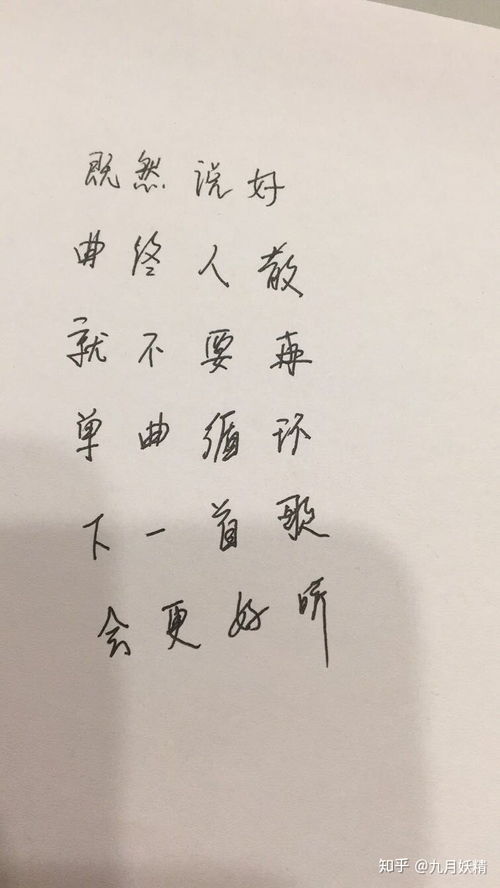 既然说好
曲终人散
就不要再
单曲循环
下一首歌
会更好听
知乎 @九月妖精